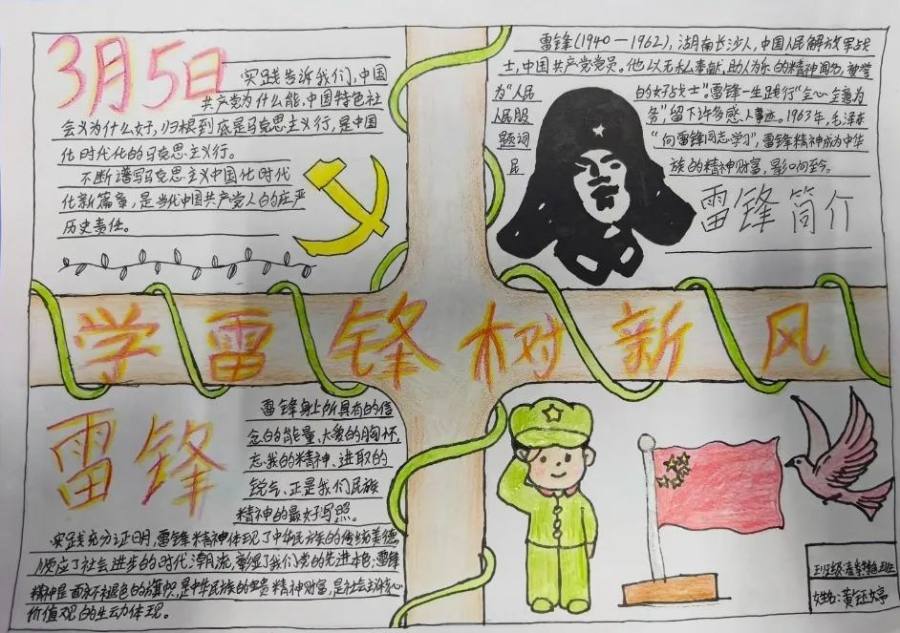 3月5日
实践告诉我们，中国
共产党为什么能，中国特色社
会义为什么好，归根到底是马克思主义行，是中国
化时代化的马克思主义行。
不断谱写马克思主义中国化时代
化新篇章，是当代中国共产党人的庄严
历史责任。
雷锋(1940—1962)，湖南长沙人，中国人民解放军战
士，中国共产党党员。他以无私奉献，助人为乐的精神闻名，被誉
为“人民的好战士”。雷锋一生践行“全心全意为
人民服务”，留下许多感人事迹。1963年，毛泽东
题词“向雷锋同志学习”，雷锋精神成为中华
民族的精神财富，影响至今。
雷锋简介
学雷锋树新风
雷锋
雷锋身上所具有的信
念的能量、大爱的胸怀、
忘我的精神、进取的
锐气，正是我们民族
精神的最好写照。
实践充分证明，雷锋精神体现了中华民族的传统美德
顺应了社会进步的时代潮流，彰显了我们党的先进本色；雷锋
精神是面永不褪色的旗帜，是中华民族的宝贵精神财富，是社会主义核心
价值观的生动体现。
班级：
姓名：黄钰婷